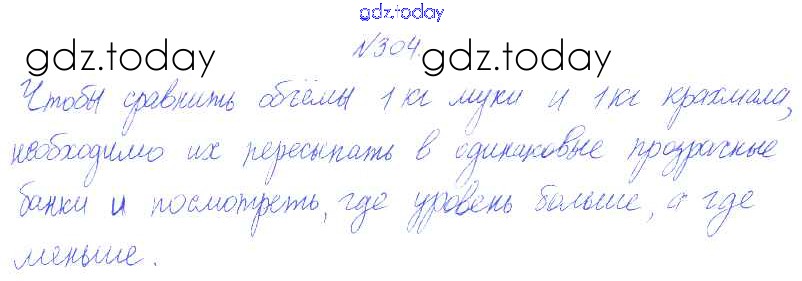 gdz.today
№304.
gdz.today gdz.today
Чтобы сравнить объёмы 1 кг муки и 1 кг крахмала,
необходимо их пересыпать в одинаковые прозрачные
банки и посмотреть, где уровень больше, а где
меньше.